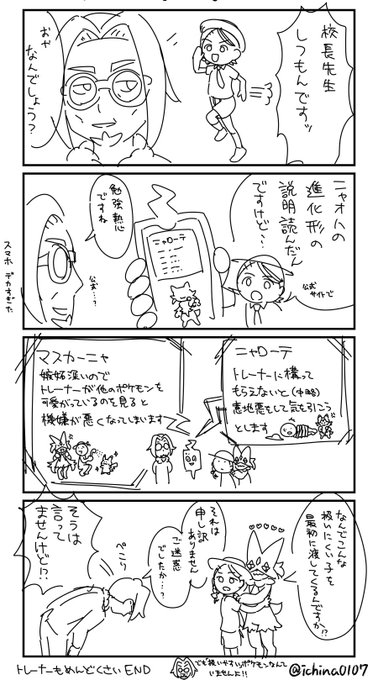 校長先生
しつもんですッ
おや
なんでしょう？
ニャオハの
進化形の
説明読んだん
ですけど…
公式
サイトで
勉強熱心
ですね
公式…？
ニャローテ
スマホ デカすぎた
ニャローテ
トレーナーに構って
もらえないと(中略)
意地悪をして気を引こう
とします
マスカーニャ
嫉妬深いので
トレーナーが他のポケモンを
可愛がっているのを見ると
機嫌が悪くなってしまいます
なんでこんな
扱いにくい子を
最初に渡してくるんですか!?
それは
申し訳
ありません
ご迷惑
でしたか…？
ぺこり
そうは
言って
ませんけど!?
トレーナーもめんどくさいEND
でも扱いやすいポケモンなんて
いませんよ!!
@ichina0107